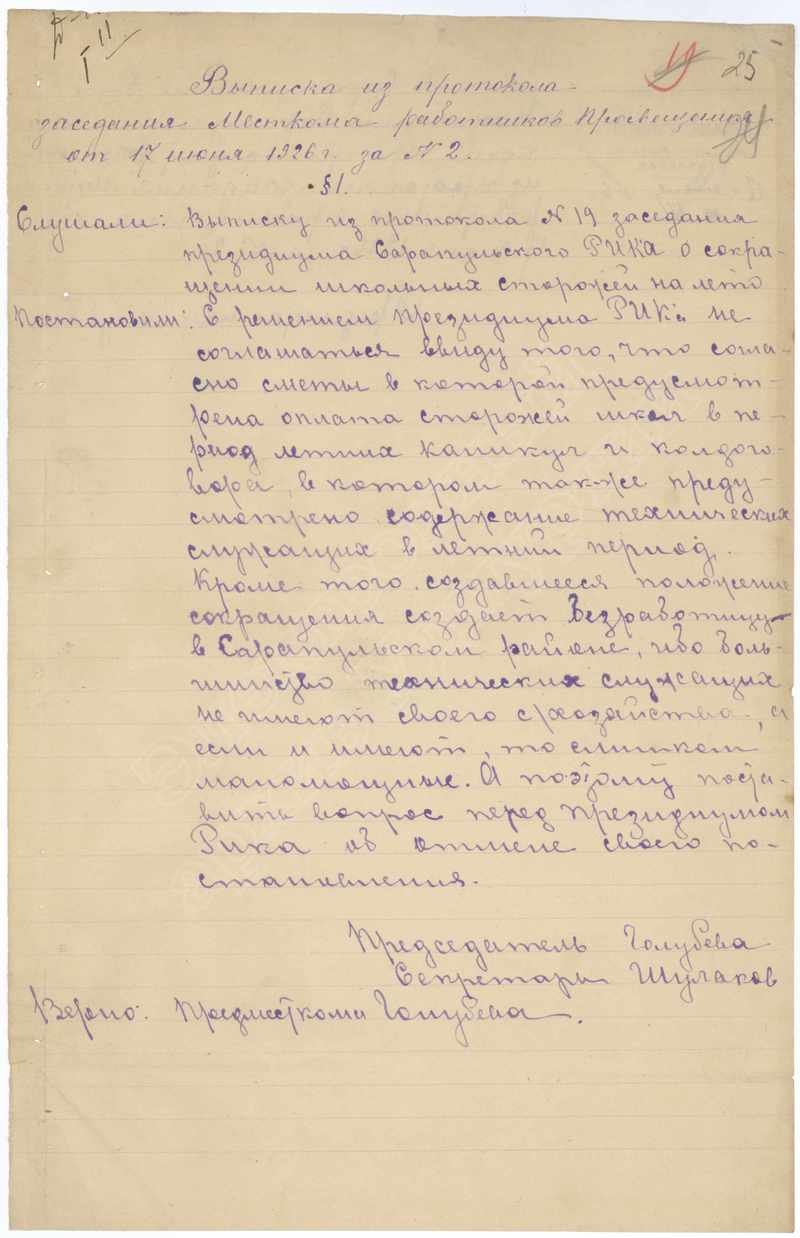 I II
25
Выписка из протокола
заседания Месткома работников Просвещения
от 17 июня 1926 г. за N 2.
§1.
Слушали: Выписку из протокола N 19 заседания
президиума Сарапульского РИКа о сокра-
щении школьных сторожей на лето
Постановили: С решением президиума РИКа не
соглашаться ввиду того, что согла-
сно сметы в которой предусмот-
рена оплата сторожей школ в пе-
риод летних каникул и колдого-
вора, в котором так-же преду-
смотрено содержание технических
служащих в летний период.
Кроме того создавшееся положение
сокращения создает безработицу
в Сарапульском районе, ибо боль-
шинство технических служащих
не имеют своего с/хозяйства, а
если и имеют, то слишком
маломощные. А поэтому поста-
вить вопрос перед президиумом
Рика об отмене своего по-
становления.
Председатель Голубева
Секретарь Шулаков
Верно: Предместкома Голубева.